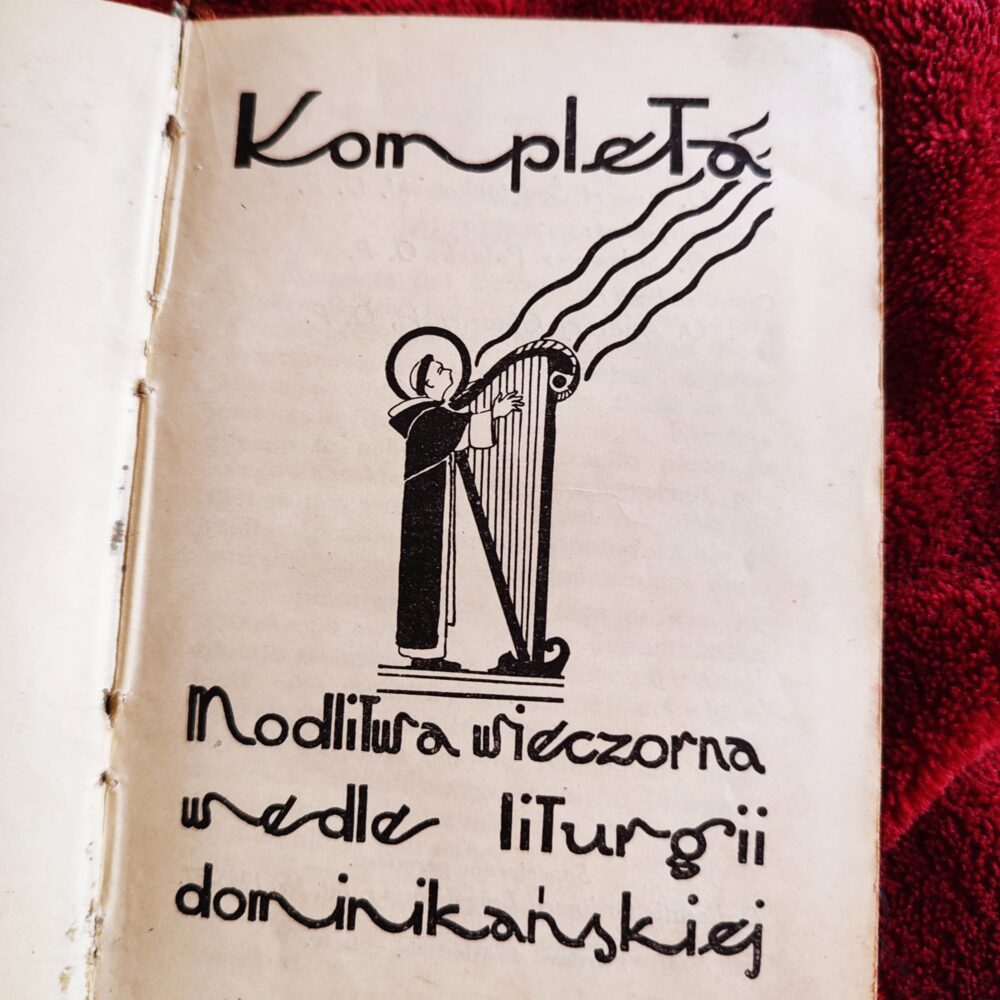 Kompleta
Modlitwa wieczorna
wedle liturgii
dominikańskiej